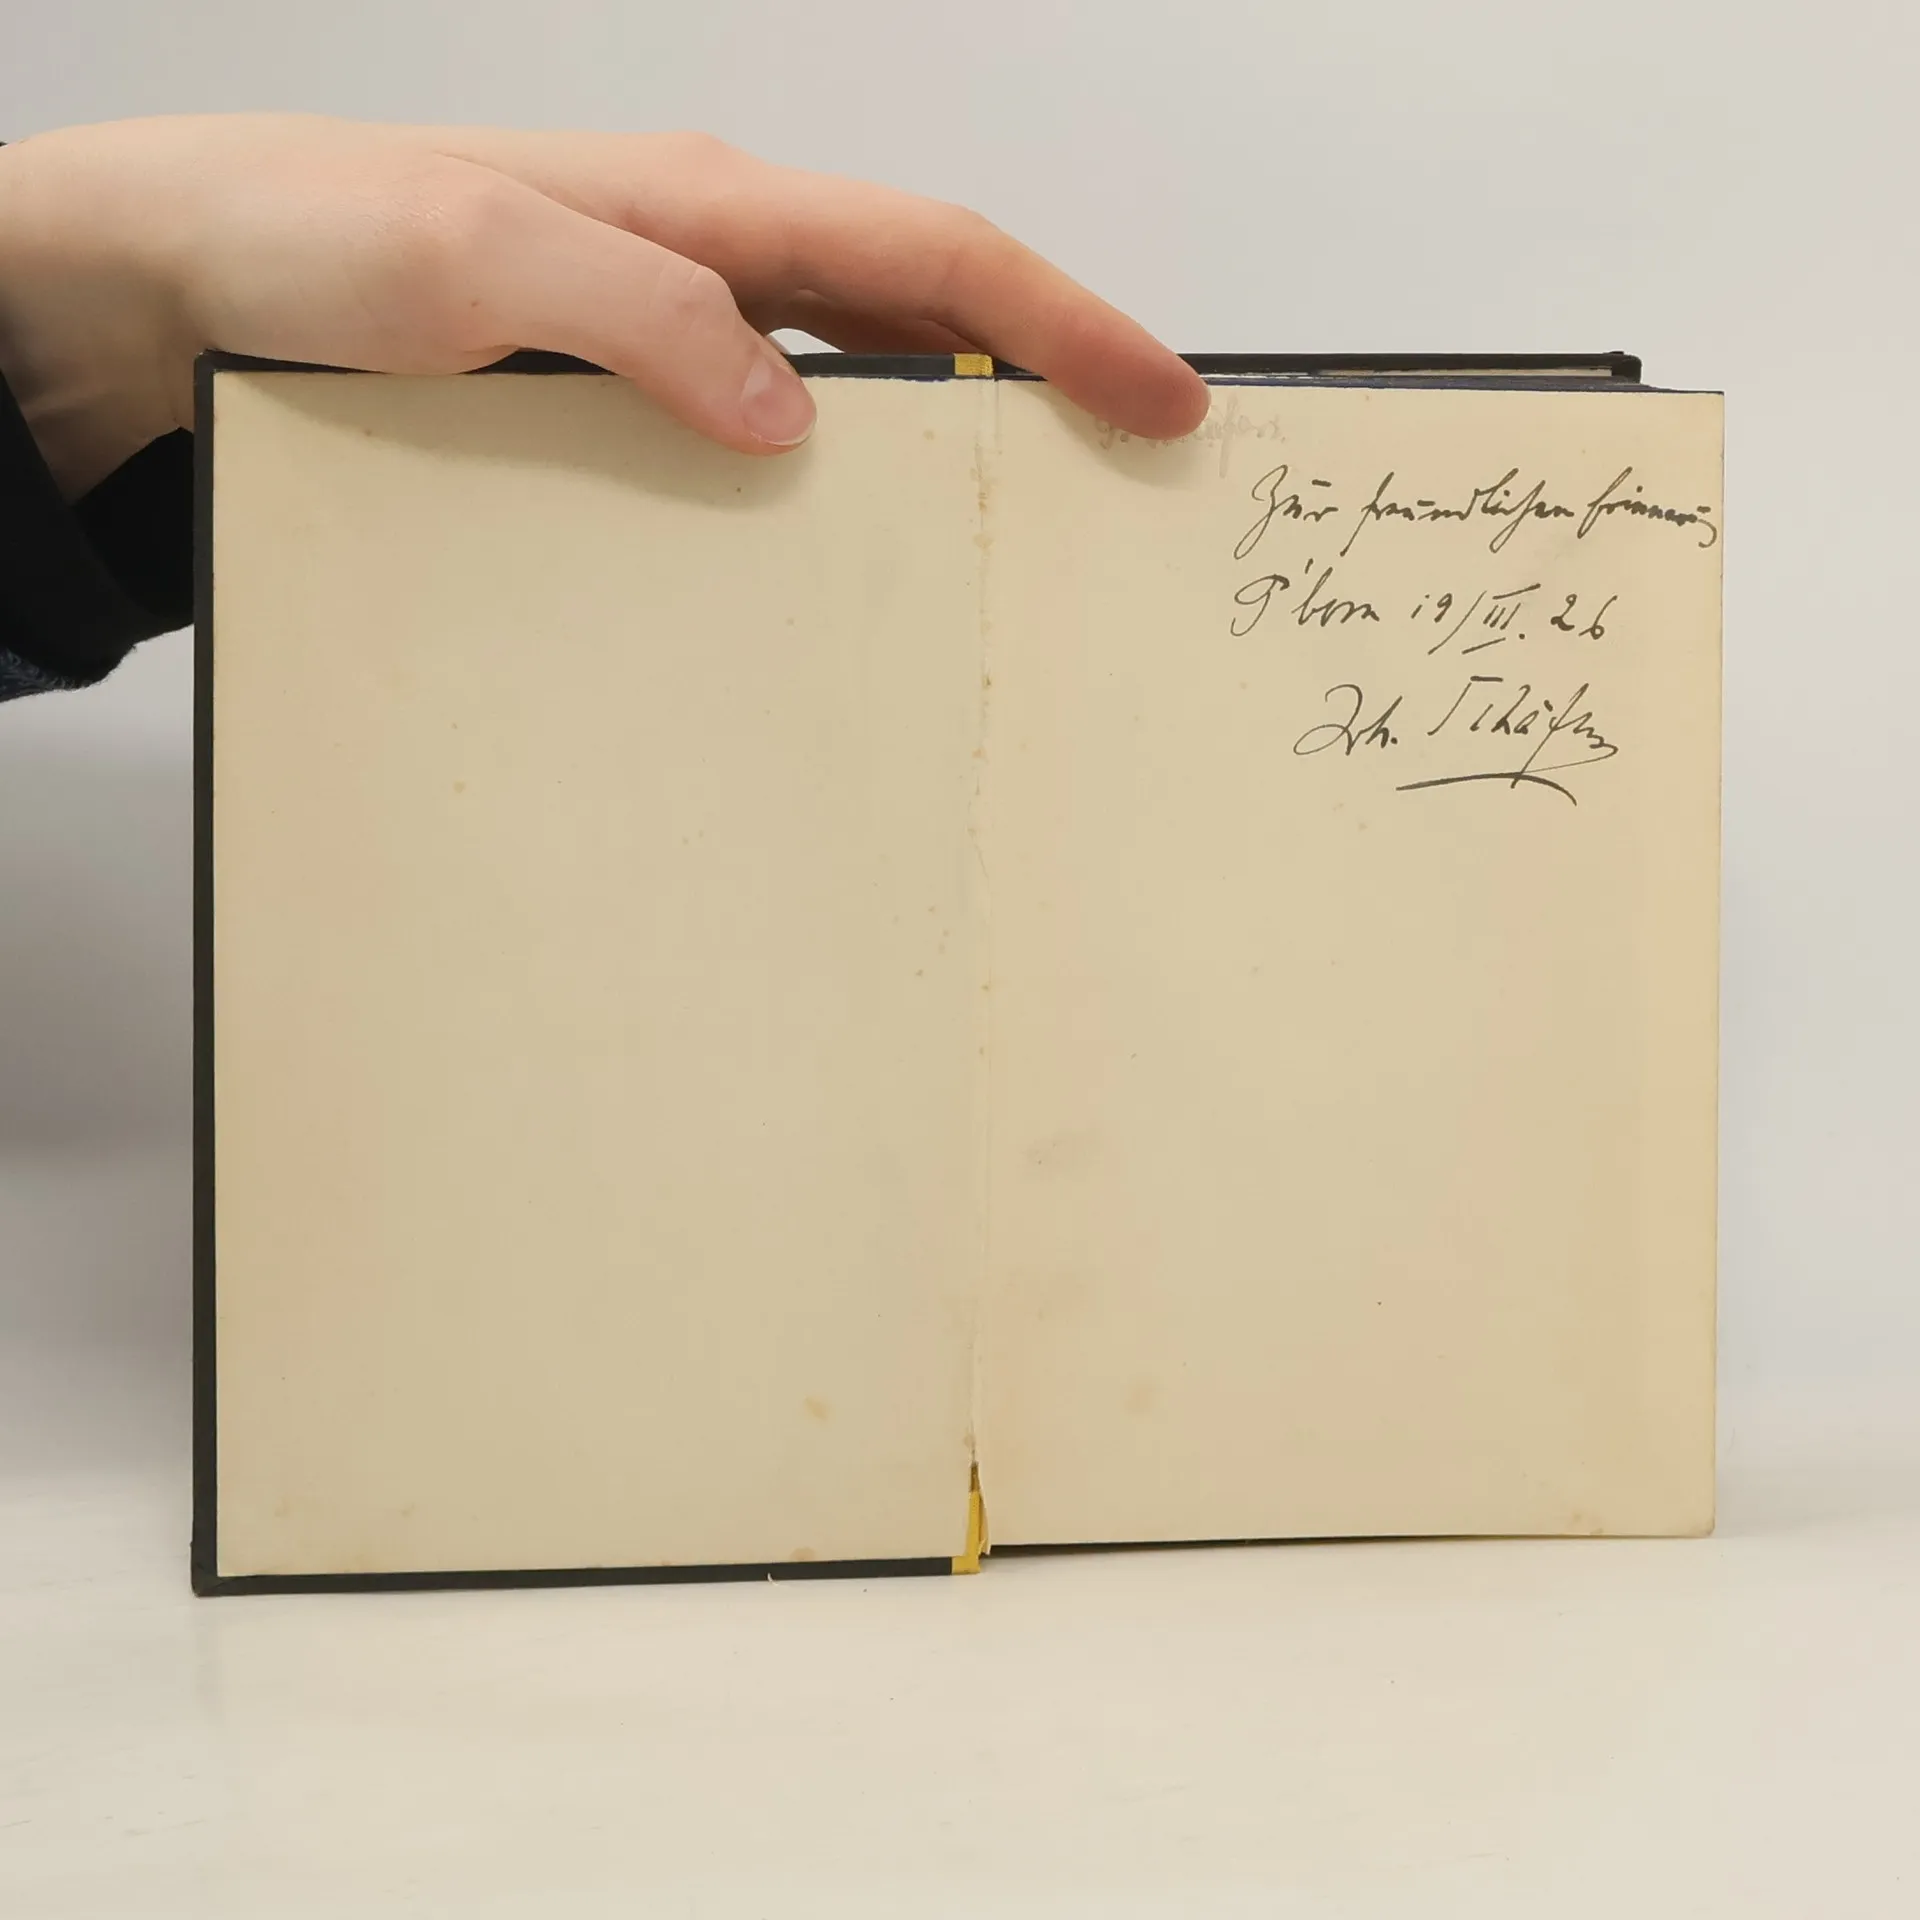 Zur freundlichen Erinnerung
P'born 19/III. 26
Joh. Schäfer